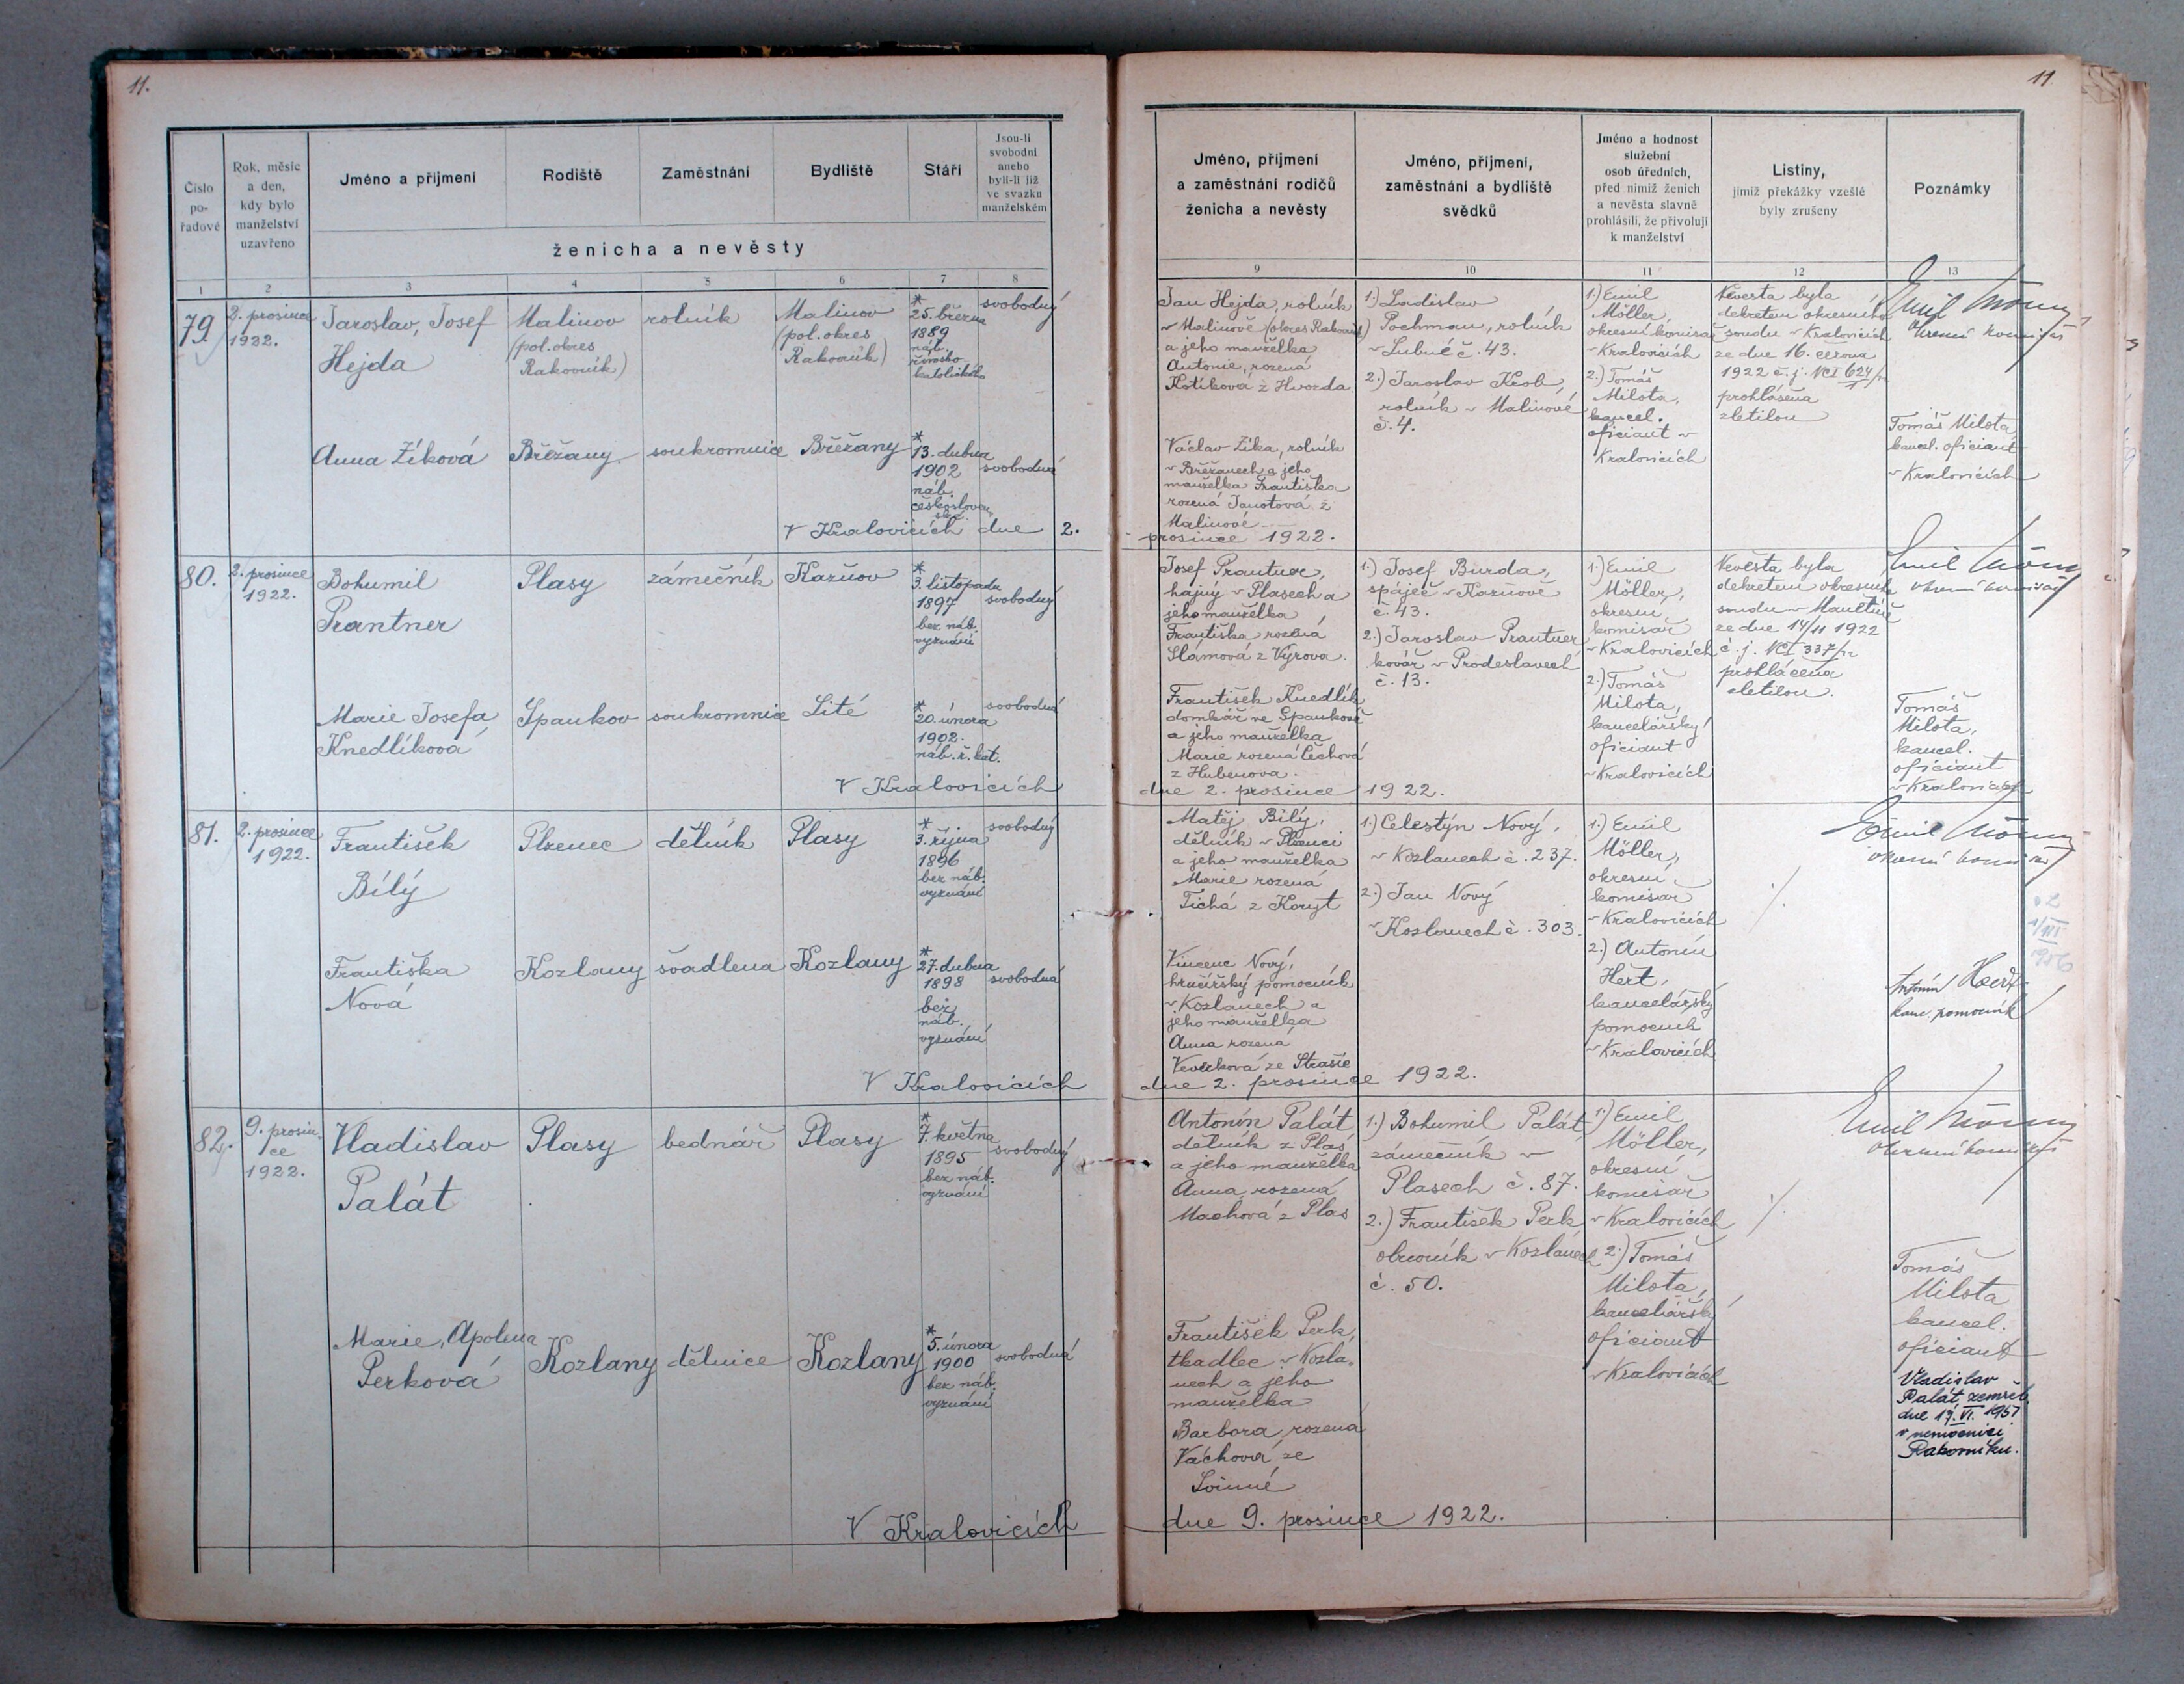 11.
Číslo
po-
řadové
Rok, měsíc
a den,
kdy bylo
manželství
uzavřeno
Jméno a příjmení
Rodiště
Zaměstnání
Bydliště
Stáří
Jsou-li
svobodni
anebo
byli-li již
ve svazku
manželském
ženicha a nevěsty
1 2 3 4 5 6 7 8
79.
2. prosince
1922.
Jaroslav, Josef
Hejda
Malinov
(pol. okres
Rakovník)
rolník
Malinov
(pol. okres
Rakovník)
*
25. března
1889
náb.
římsko
katolického
svobodný
Anna Žíková
Břěžany
soukromnice
Břěžany
*
13. dubna
1902
náb.
českosloven
ské
svobodná
V Kralovicích dne 2.
80.
2. prosince
1922.
Bohumil
Prantner
Plasy
zámečník
Kaznov
*
3. listopadu
1897
bez náb.
vyznání
svobodný
Marie Josefa
Knedlíková
Špankov
soukromnice
Lité
*
20. února
1902.
náb. ř. kat.
svobodná
V Kralovicích
81.
2. prosince
1922.
František
Bílý
Plzenec
dělník
Plasy
*
3. října
1896
bez náb.
vyznání
svobodný
Františka
Nová
Kozlany
švadlena
Kozlany
*
27. dubna
1898
bez
náb.
vyznání
svobodná
V Kralovicích
82.
9. prosin
ce
1922.
Vladislav
Palát
Plasy
bednář
Plasy
*
7. května
1895
bez náb.
vyznání
svobodný
Marie, Apolena
Perková
Kozlany
dělnice
Kozlany
*
5. února
1900
bez náb.
vyznání
svobodná
V Kralovicích
11
Jméno, příjmení
a zaměstnání rodičů
ženicha a nevěsty
Jméno, příjmení,
zaměstnání a bydliště
svědků
Jméno a hodnost
služební
osob úředních,
před nimiž ženich
a nevěsta slavně
prohlásili, že přivolují
k manželství
Listiny,
jimiž překážky vzešlé
byly zrušeny
Poznámky
9 10 11 12 13
Jan Hejda, rolník
v Malinově (okres Rakovník)
a jeho manželka
Antonie, rozená
Kotíková z Hvozda
1.) Ladislav
Pochman, rolník
v Lubné č. 43.
2.) Jaroslav Krob,
rolník v Malinově
č. 4.
1.) Emil
Möller,
okresní komisař
v Kralovicích
2.) Tomáš
Milota,
kancel.
oficiant v
Kralovicích
Nevěsta byla
dekretem okresního
soudu v Kralovicích
ze dne 16. června
1922 č. j. NcI 624/22
prohlášena
zletilou
Emil Möller
okresní komisař
Tomáš Milota
kancel. oficiant
v Kralovicích
Václav Žika, rolník
v Břěžanech a jeho
manželka Františka
rozená Janotová z
Malinové
prosince 1922.
Josef Prantner,
hajný v Plasech a
jeho manželka
Františka rozená
Slámová z Výrova.
1.) Josef Burda,
spáječ v Kaznově
č. 43.
2.) Jaroslav Prantner
kovář v Prodeslavech
č. 13.
1.) Emil
Möller,
okresní
komisař
v Kralovicích
2.) Tomáš
Milota,
kancelářský
oficiant
v Kralovicích
Nevěsta byla
dekretem okresního
soudu v Manětíně
ze dne 14/11 1922
č. j. NcI 337/22
prohlášena
zletilou.
Emil Möller
okresní komisař
Tomáš
Milota,
kancel.
oficiant
v Kralovicích
František Knedlík
domkář ve Špankově
a jeho manželka
Marie rozená Čechová
z Hubenova.
dne 2. prosince 1922.
Matěj Bílý,
dělník v Plzenci
a jeho manželka
Marie rozená
Tichá z Koryt
1.) Celestýn Nový,
v Kozlanech č. 237.
2.) Jan Nový
v Kozlanech č. 303.
1.) Emil
Möller,
okresní
komisař
v Kralovicích
2.) Antonín
Heřt,
kancelářský
pomocník
v Kralovicích
Emil Möller
okresní komisař
Antonín Heřt
kanc. pomocník
Vincenc Nový,
hrnčířský pomocník
v Kozlanech a
jeho manželka
Anna rozená
ze Strašic
dne 2. prosince 1922.
Antonín Palát
dělník z Plas
a jeho manželka
Anna, rozená
Machová z Plas
1.) Bohumil Palát,
zámečník v
Plasech č. 87.
2.) František Perk
obuvník v Kozlanech
č. 50.
1.) Emil
Möller,
okresní
komisař
v Kralovicích
2.) Tomáš
Milota,
kancelářský
oficiant
v Kralovicích
Emil Möller
okresní komisař
Tomáš
Milota
kancel.
oficiant
Vladislav
Palát zemřel
dne 19. VI. 1957
v nemocnici
Rakovníku.
František Perk,
tkadlec v Kozla-
nech a jeho
manželka
Barbora, rozená
Váchová ze
Svinné
dne 9. prosince 1922.